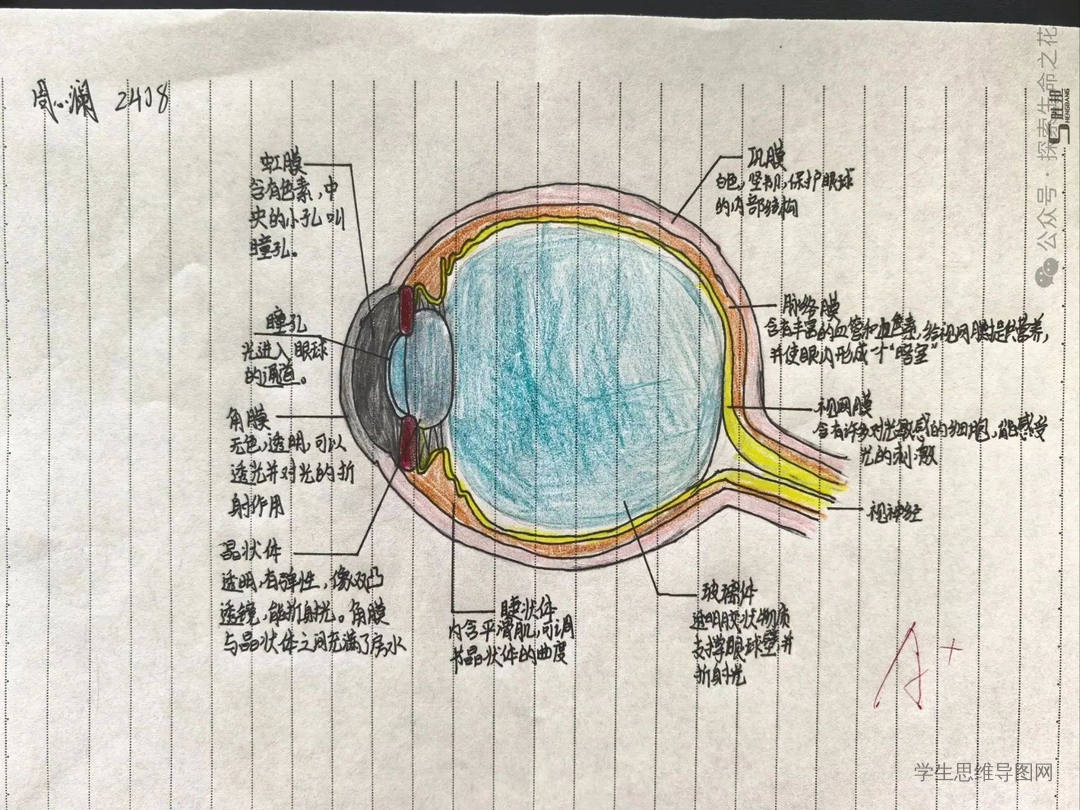 周心澜 2408
虹膜
含有色素,中
央的小孔叫
瞳孔。
瞳孔
光进入眼球
的通道。
角膜
无色,透明,可以
透光并对光的折
射作用
晶状体
透明,有弹性,像双凸
透镜,能折射光。角膜
与晶状体之间充满了房水
睫状体
内含平滑肌,可调
节晶状体的曲度
玻璃体
透明胶状物质
支撑眼球壁并
折射光
巩膜
白色,坚韧,保护眼球
的内部结构
脉络膜
含有丰富的血管和色素,给视网膜提供营养,
并使眼内形成一个“暗室”
视网膜
含有许多对光敏感的细胞,能感受
光的刺激
视神经
A+
公众号·探索生命之花
胜邦
SHENGBANG
学生思维导图网